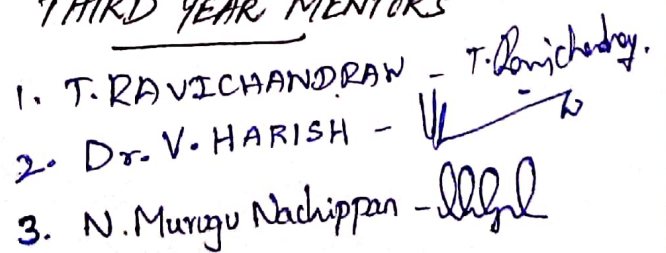 THIRD YEAR MENTORS
1. T. RAVICHANDRAN - T. Ravichandran.
2. Dr. V. HARISH -
3. N. Murugu Nachippan -